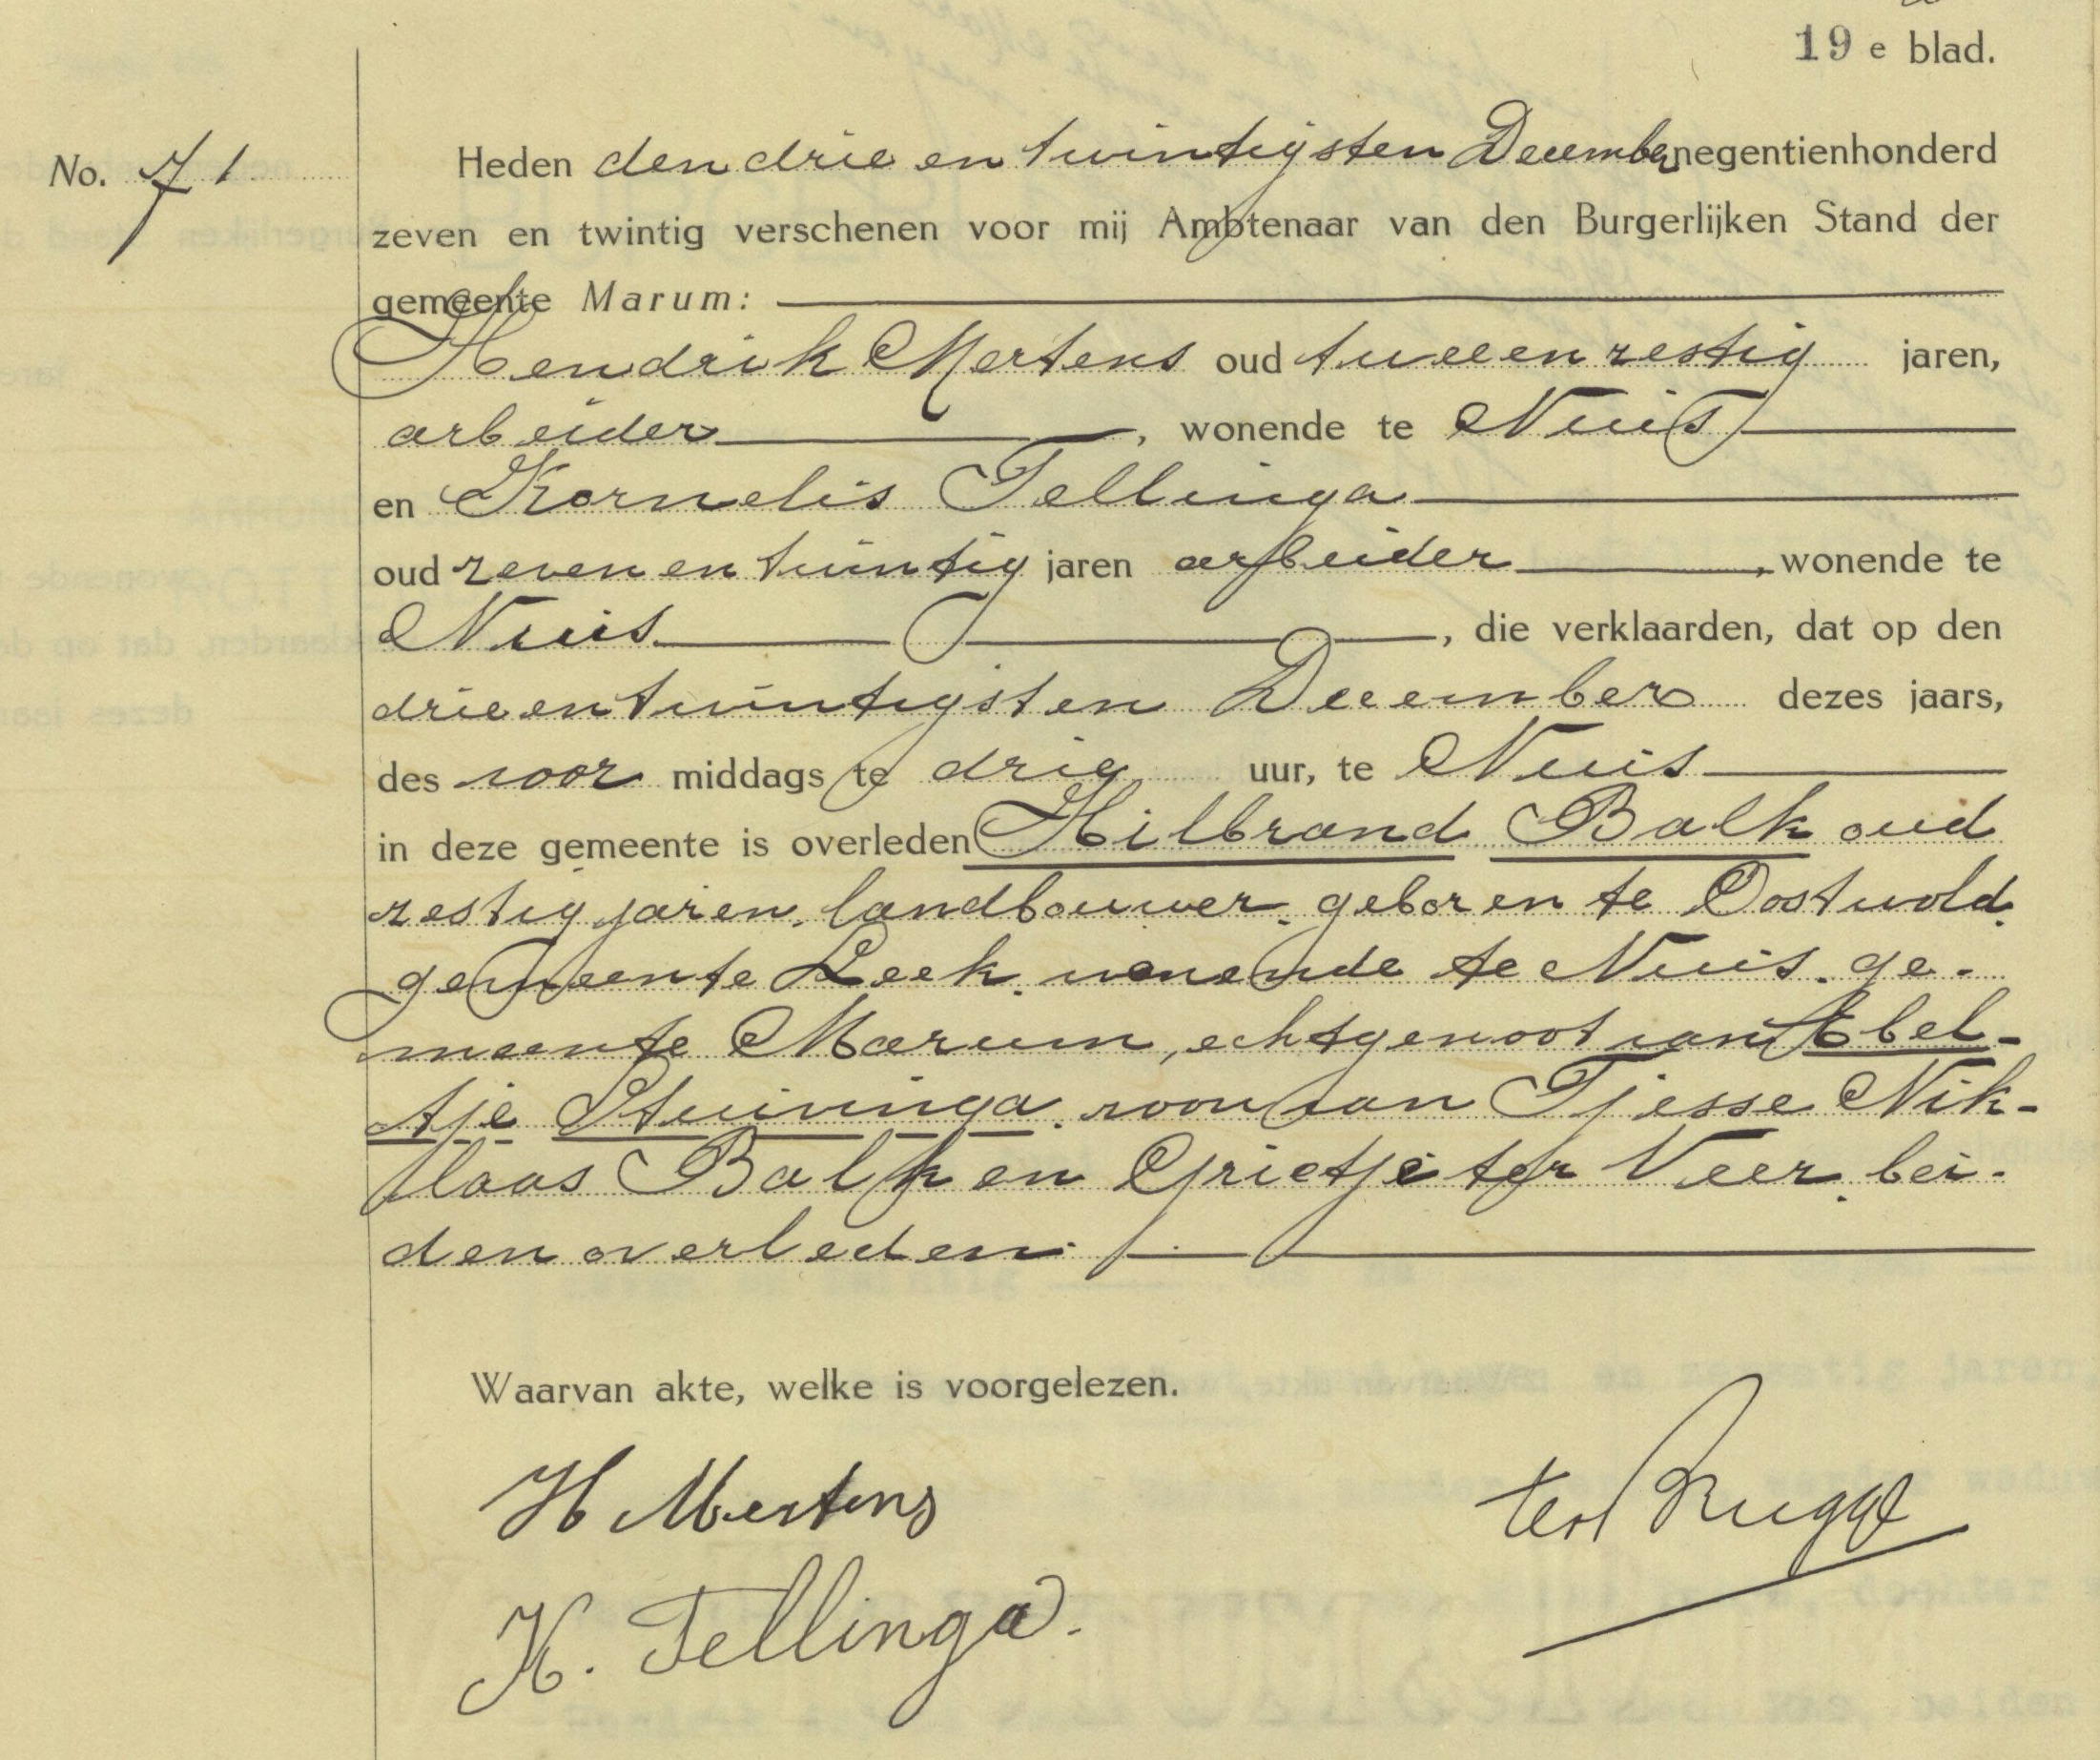 19 e blad.
No. 71
Heden den drie en twintigsten December negentienhonderd
zeven en twintig verschenen voor mij Ambtenaar van den Burgerlijken Stand der
gemeente Marum:
Hendrik Mertens oud twee en zestig jaren,
arbeider, wonende te Nuis
en Kornelis Tellinga
oud zeven en twintig jaren arbeider, wonende te
Nuis, die verklaarden, dat op den
drie en twintigsten December dezes jaars,
des voor middags te drie uur, te Nuis
in deze gemeente is overleden Hilbrand Balk oud
zestig jaren, landbouwer, geboren te Oostwold,
gemeente Leek, wonende te Nuis, ge-
meente Marum, echtgenoot van Ebel-
tje Stuivinga, zoon van Tjesse Nik-
laas Balk en Grietje ter Veer, bei-
den overleden.
Waarvan akte, welke is voorgelezen.
H Mertens
ter Rugge
K. Tellinga.